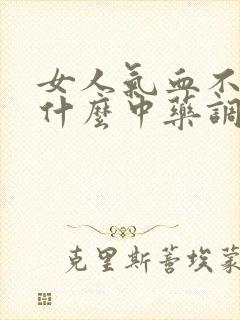 女人氣血不
什麼中藥調
克里斯蒂埃蒙